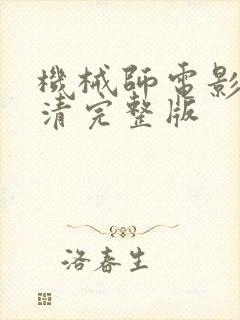 機械師電影
清完整版
洛春生